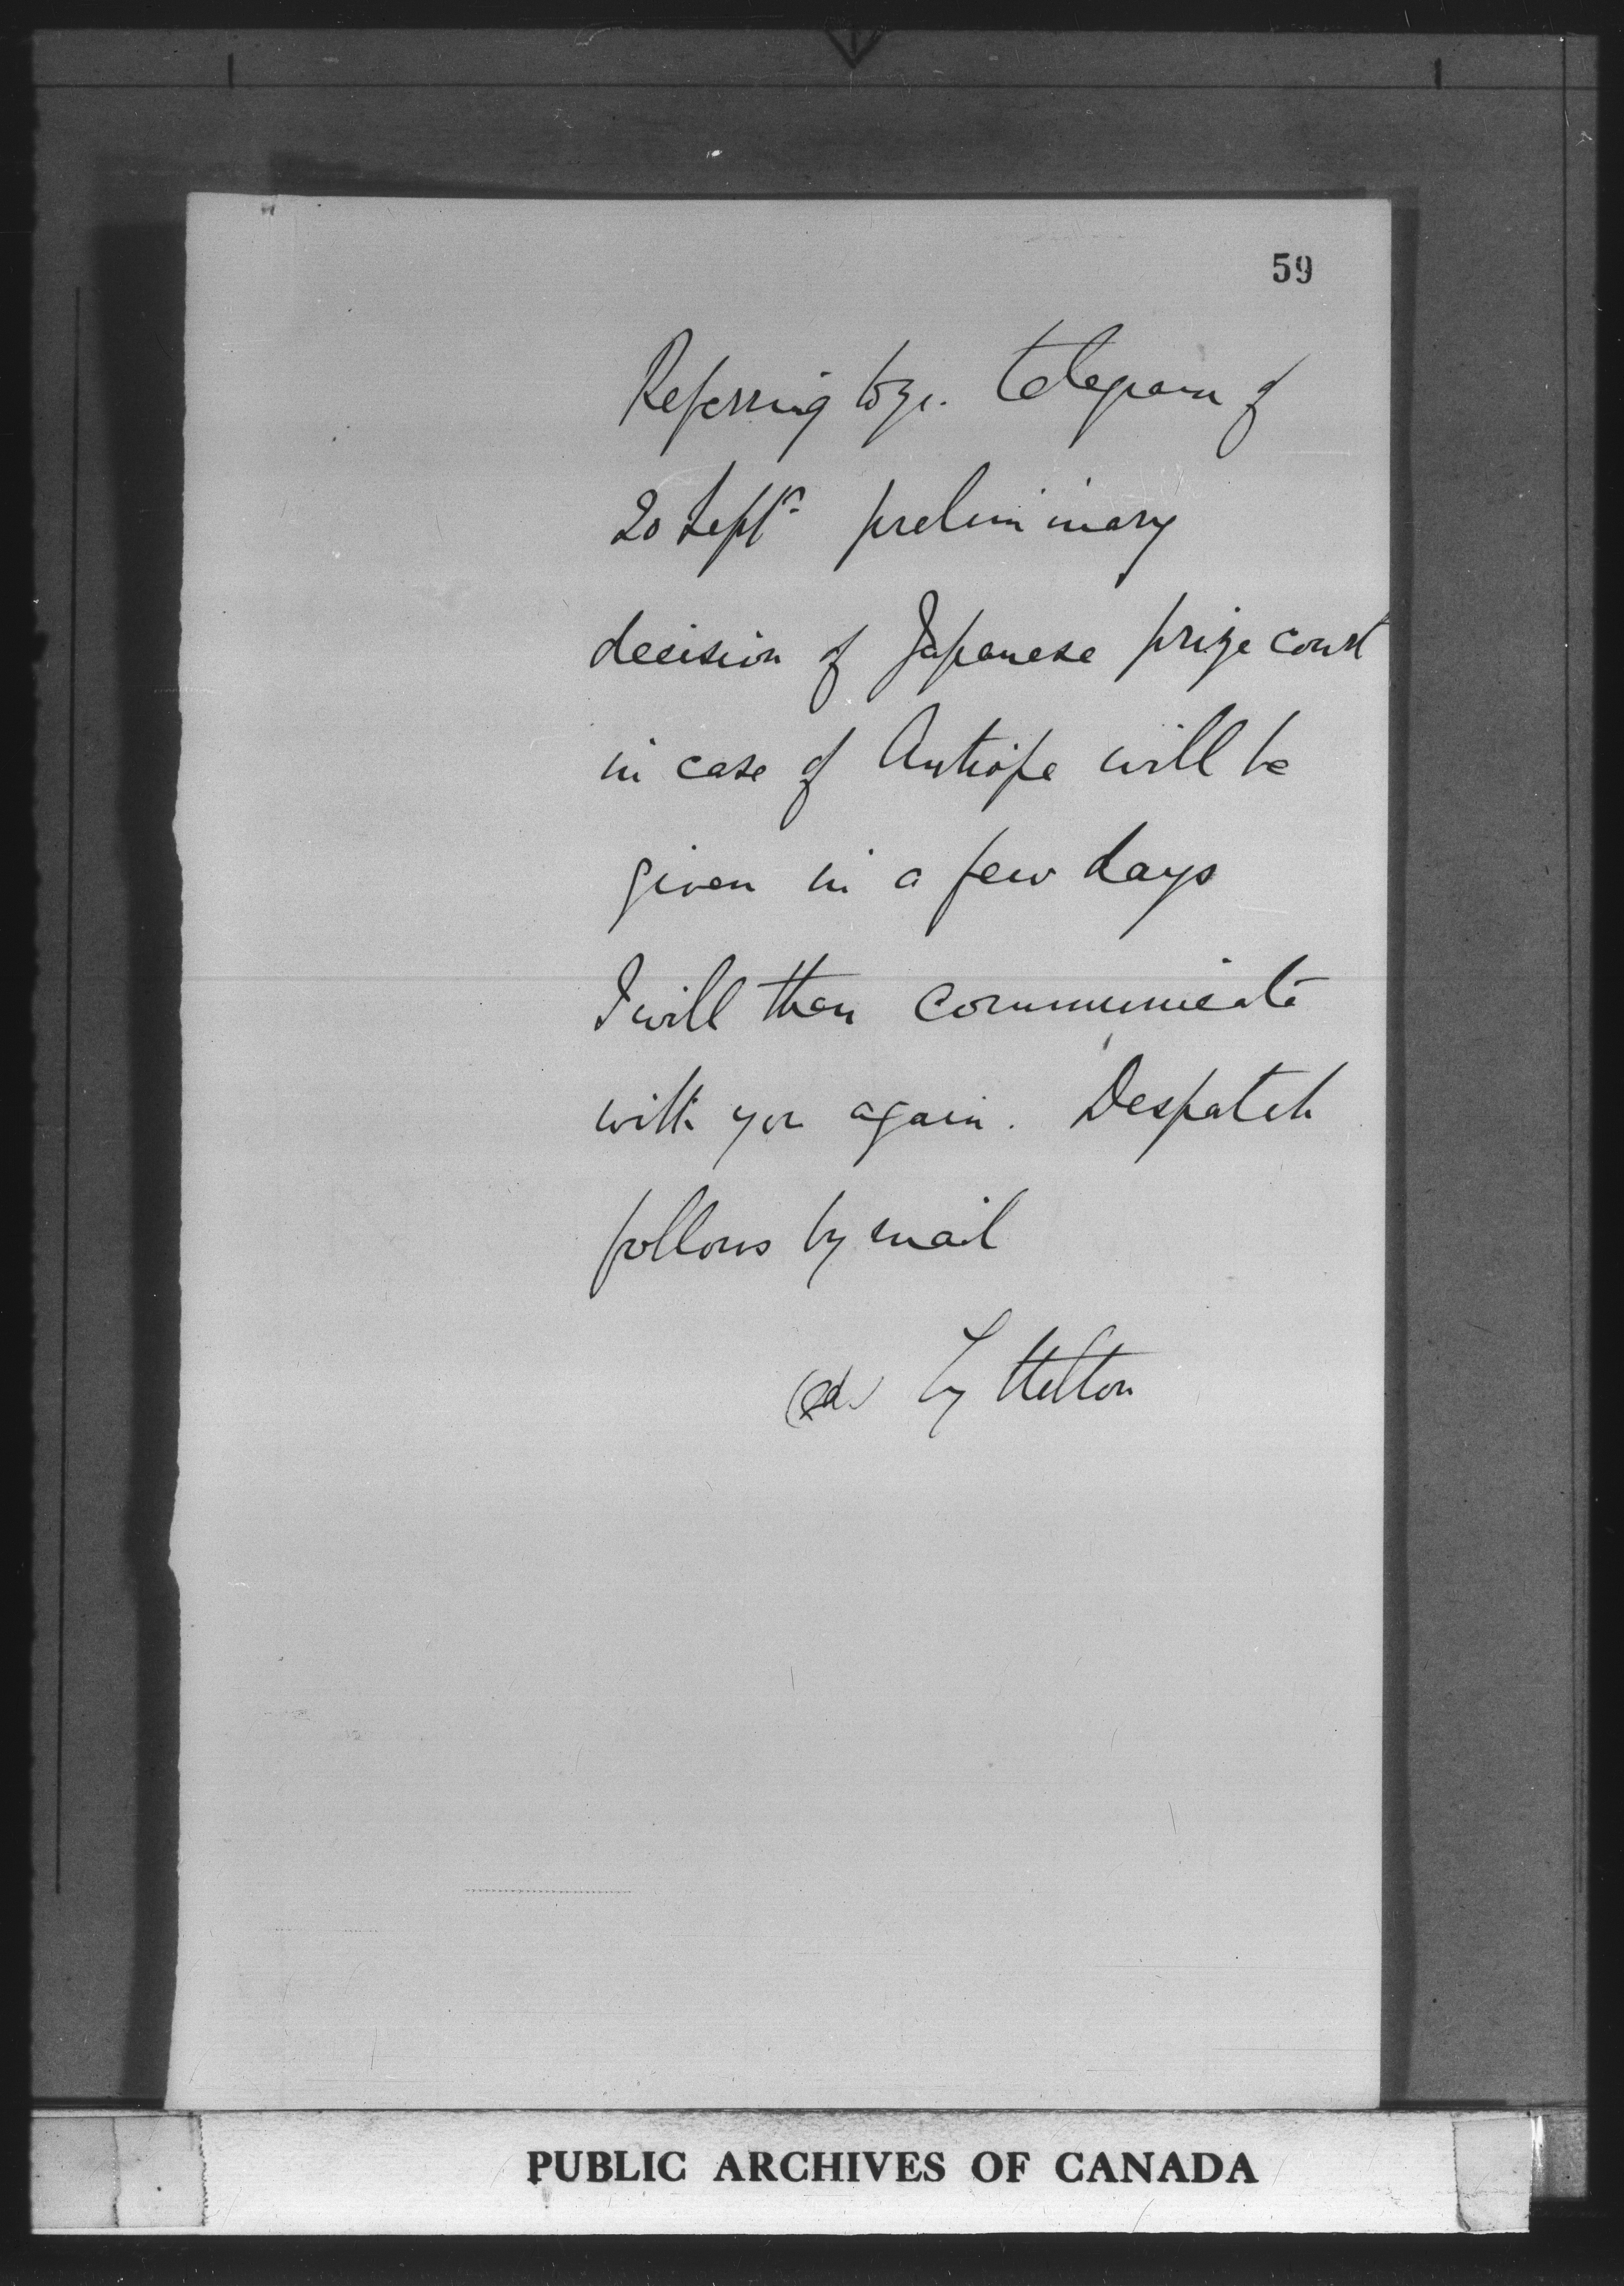 59
Referring to yr. telegram of
20 Septr. preliminary
decision of Japanese prize court
in case of Antiope will be
given in a few days
I will then communicate
with you again. Despatch
follows by mail
(sd. Lyttelton
PUBLIC ARCHIVES OF CANADA